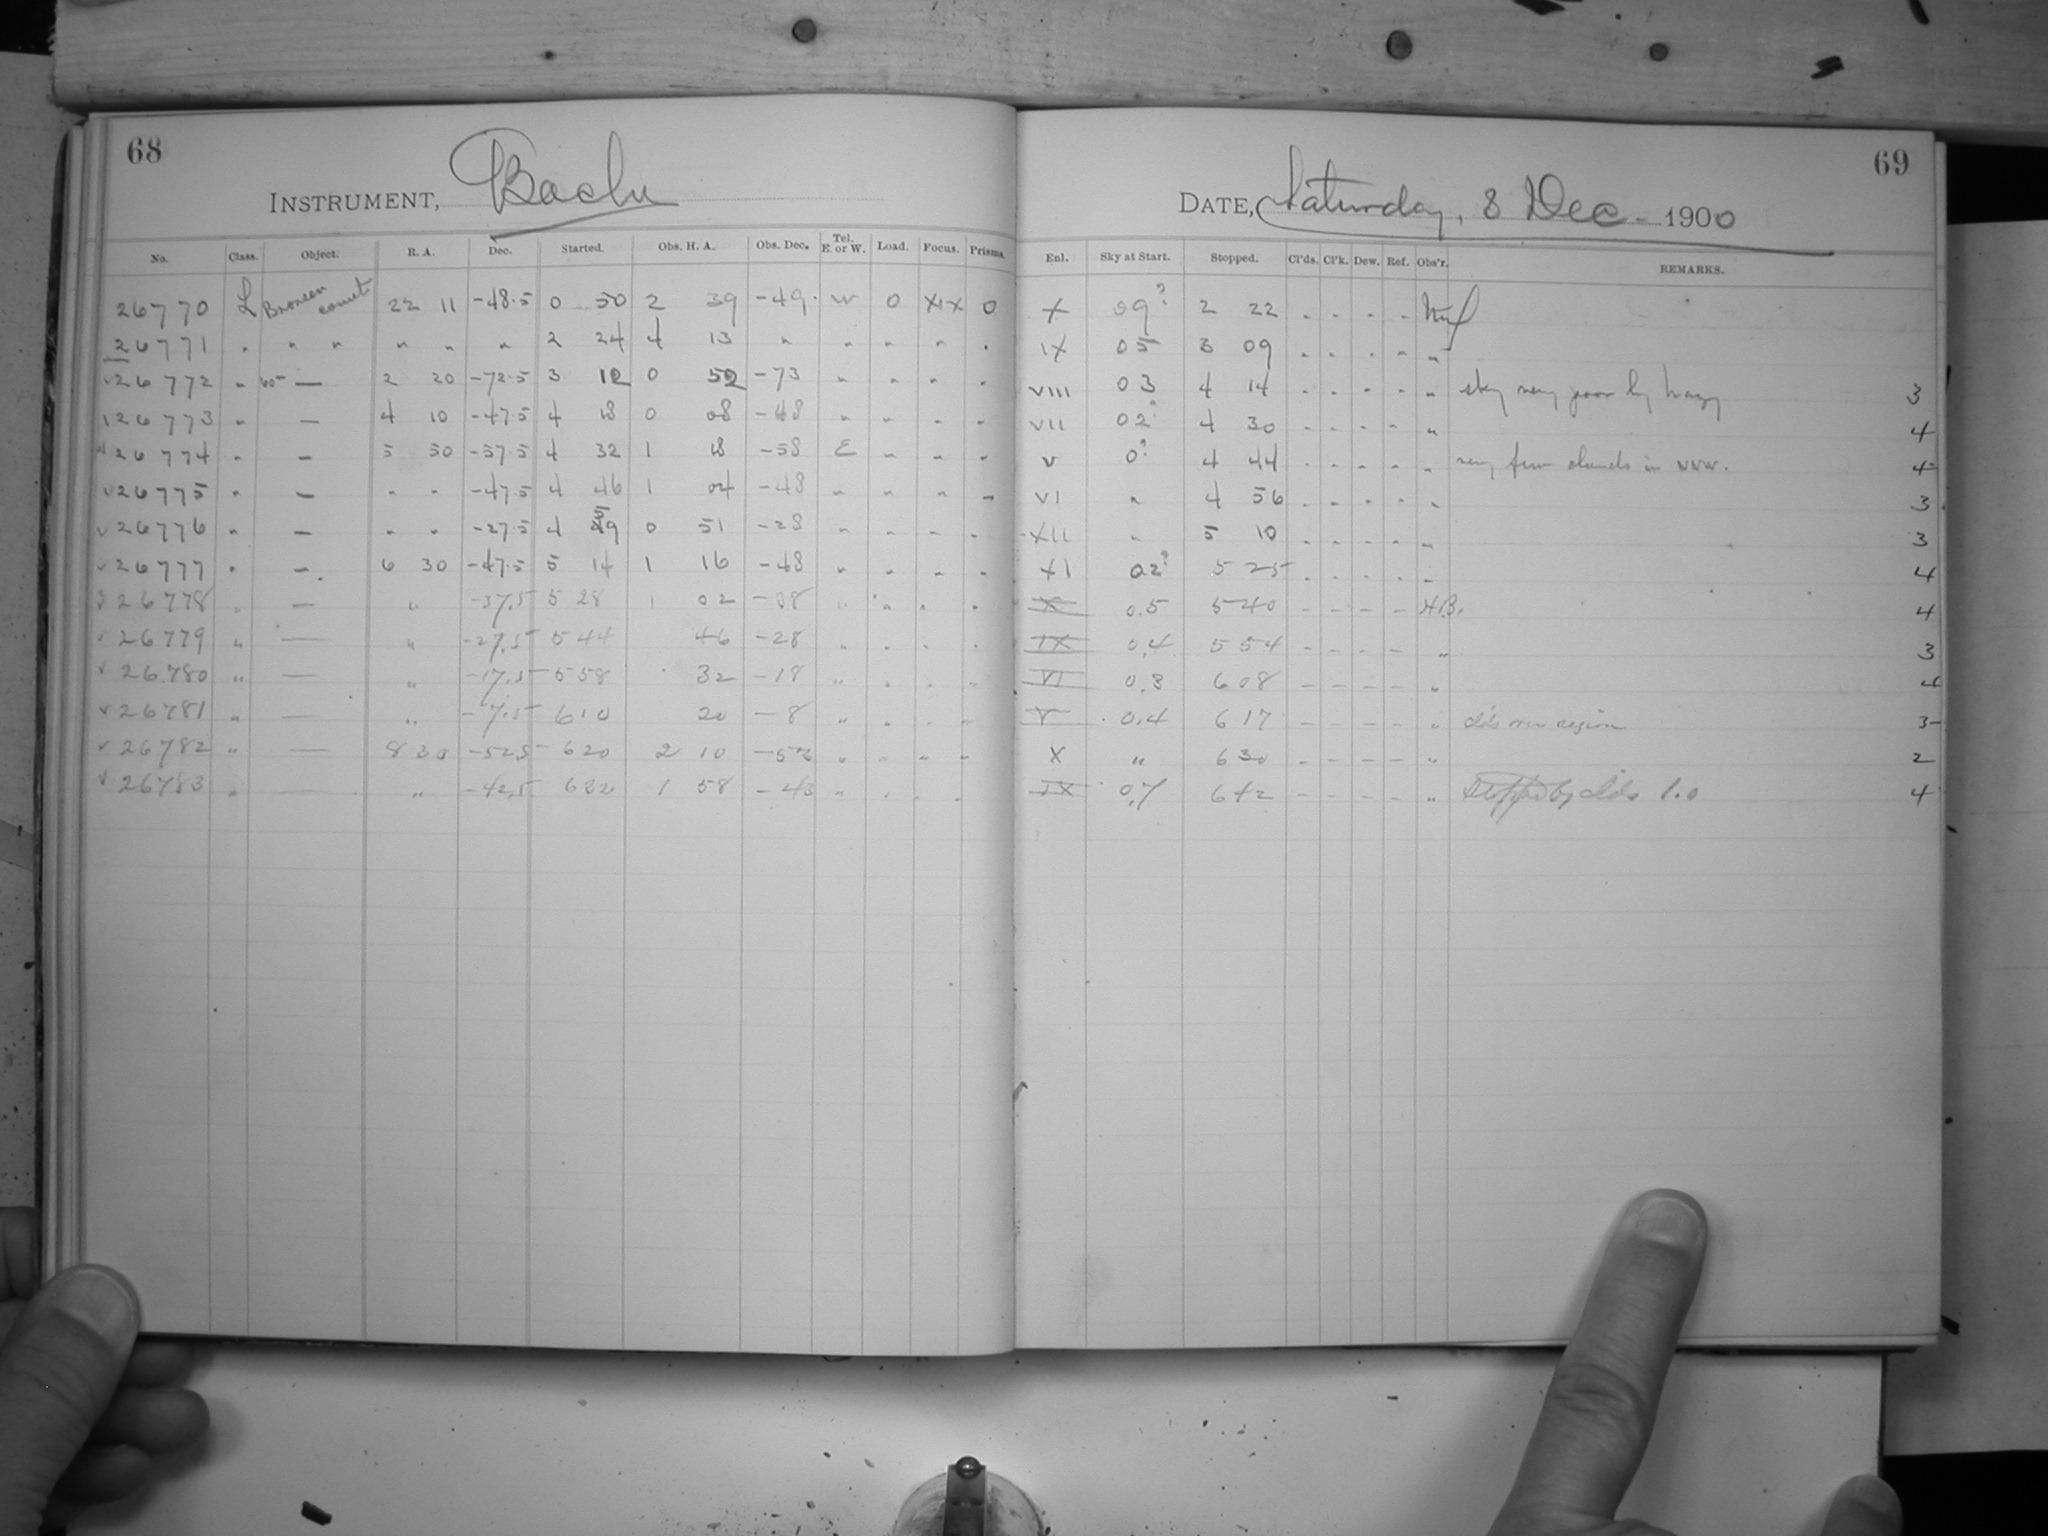 68
INSTRUMENT, Bache
No. Class. Object. R. A. Dec. Started. Obs. H. A. Obs. Dec. Tel. E. or W. Load. Focus. Prisms.
26770 L 22 11 -48.5 0 50 2 39 -49. W 0 XIX 0
26771 " " " " " " 2 24 4 13 " " " " "
26772 " 60m — 2 20 -72.5 3 12 0 52 -73 " " " "
26773 " — 4 10 -47.5 4 18 0 08 -48 " " " "
26774 " — 5 50 -57.5 4 32 1 18 -58 E " " "
26775 " — " " -47.5 4 46 1 04 -48 " " " "
26776 " — " " -27.5 4 59 0 51 -28 " " " "
26777 " — 6 30 -47.5 5 14 1 16 -48 " " " "
26778 " — " -37.5 5 28 1 02 -38 " " " "
26779 " — " -27.5 5 44 46 -28 " " " "
26780 " — " -17.5 5 58 32 -18 " " " "
26781 " — " -7.5 6 10 20 -8 " " " "
26782 " — 8 30 -52.5 6 20 2 10 -53 " " " "
26783 " — " -42.5 6 32 1 58 -43 " " " "
69
DATE, Saturday, 8 Dec. 1900
Enl. Sky at Start. Stopped. Cl'ds. Cl'k. Dew. Ref. Obs'r. REMARKS.
X 09? 2 22 - - - -
IX 05 3 09 - - - - "
VIII 03 4 14 - - - - " sky very poor by hazy 3
VII 02? 4 30 - - - - " 4
V 0? 4 44 - - - - " very few clouds in NNW. 4
VI " 4 56 - - - - " 3
XII " 5 10 - - - - " 3
XI 02? 5 25 - - - - " 4
X 0.5 5 40 - - - - H.B. 4
IX 0.4 5 54 - - - - " 3
VI 0.3 6 08 - - - - " 4
V 0.4 6 17 - - - - " clds over region 3
X " 6 30 - - - - " 2
IX 0.7 6 42 - - - - " Stopped by clds 1.0 4